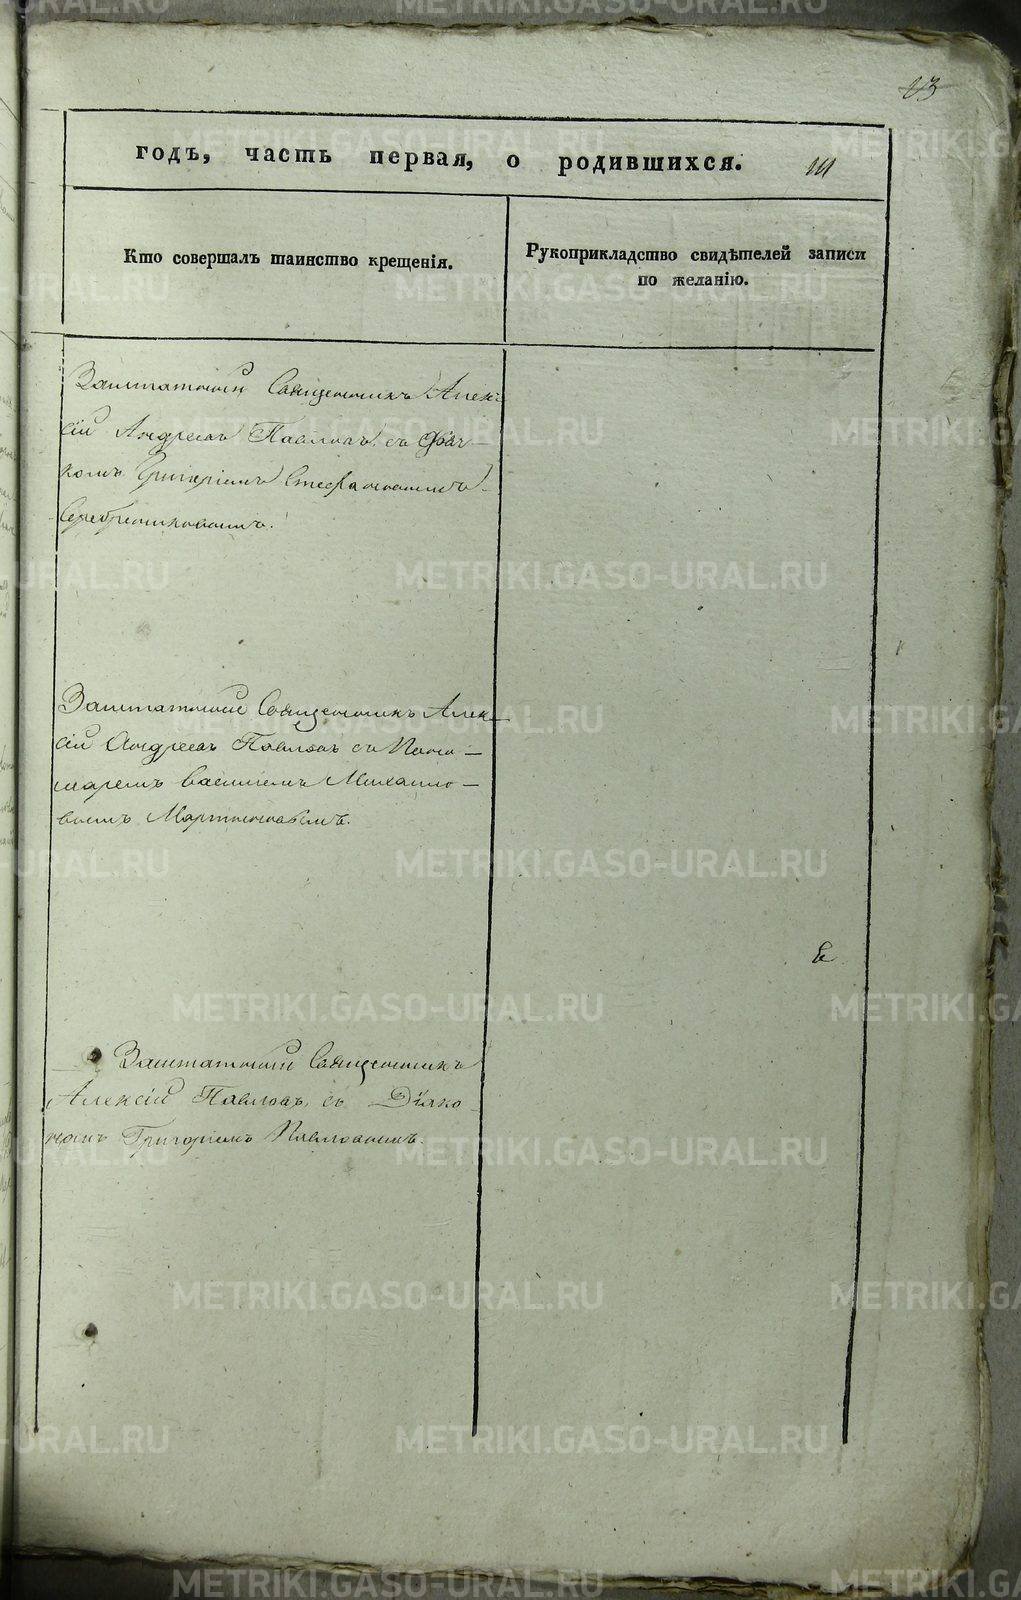 годъ, часть первая, о родившихся.
Кто совершалъ таинство крещенія.
Рукоприкладство свидѣтелей записи
по желанію.
Заштатный Священникъ Алек-
сій Андреевъ Павловъ съ Дьяч-
комъ Григоріемъ Стефановымъ
Серебренниковымъ.
Заштатный Священникъ Алек-
сій Андреевъ Павловъ съ Поно-
маремъ Василіемъ Михайло-
вымъ Мартыновымъ.
Заштатный Священникъ
Алексій Павловъ, съ Діяко-
номъ Григоріемъ Павловымъ.
METRIKI.GASO-URAL.RU